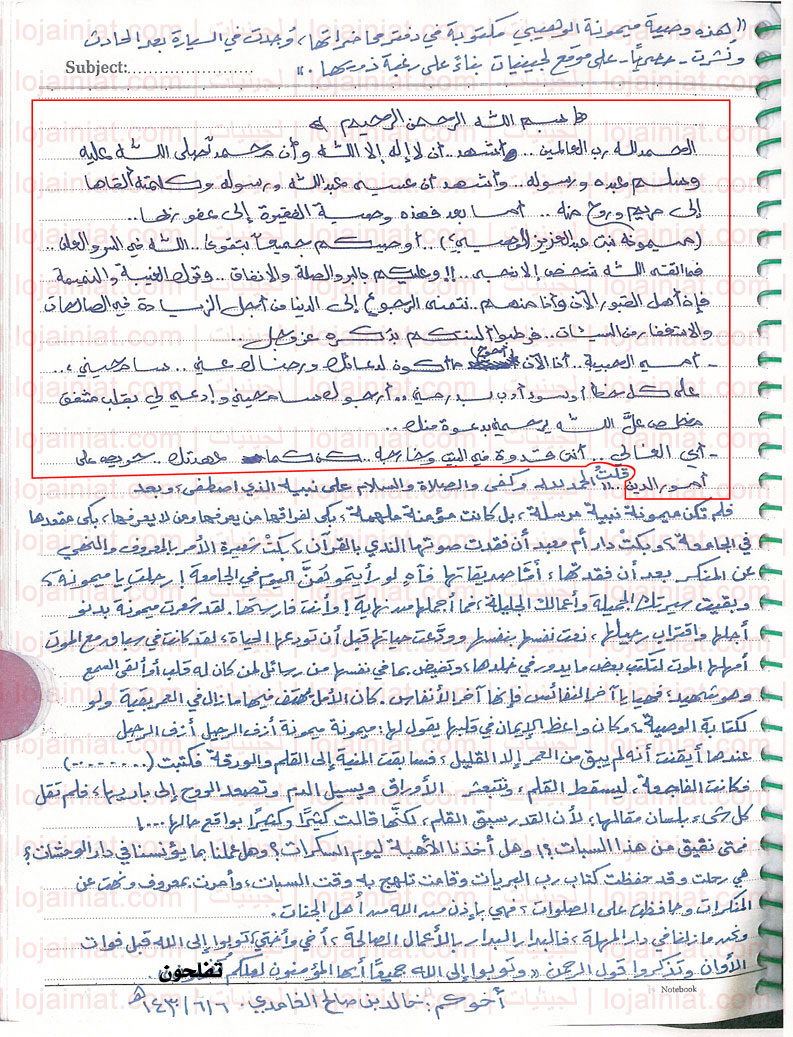 (( هذه وصية ميمونة الوهيبي مكتوبة في دفتر محاضراتها، وُجدت في السيارة بعد الحادث
ونشرت - حصرياً - على موقع لجينيات بناءً على رغبة ذويها. ))
Subject:
بسم الله الرحمن الرحيم
الحمد لله رب العالمين .. وأشهد أن لا إله إلا الله وأن محمد صلى الله عليه
وسلم عبده ورسوله .. وأشهد أن عيسى عبد الله ورسوله وكلمته ألقاها
إلى مريم وروح منه .. أما بعد فهذه وصية الفقيرة إلى عفو ربها ..
(ميمونة بنت عبدالعزيز الوهيبي) .. أوصيكم جميعاً بتقوى الله في السر والعلن ..
فما اتقى الله شخص إلا نجى .. !! وعليكم بالبر والصلة والإنفاق .. وترك الغيبة والنميمة
فإن أهل القبور الآن وأنا منهم .. نتمنى الرجوع إلى الدنيا من أجل الزيادة في الصالحات
والاستغفار من السيئات .. فرطبوا ألسنتكم بذكره عز وجل ..
- أمي الحبيبة .. أنا الآن أحوج ما أكون لدعائك ورضاك عني .. سامحيني ،
على كل خطأ أو سوء أدب بدر مني .. أرجوك سامحيني وادعي لي بقلب مشفق
مخلص علَّ الله يرحمني بدعوة منك ..
- أبي الغالي .. أنت قدوة في البيت وخارجه .. كن كما عهدتك .. حريص على
أمور الدين .. قلتُ الحمد لله وكفى والصلاة والسلام على نبيه الذي اصطفى، وبعد
فلم تكن ميمونة نبية مرسلة، بل كانت مؤمنة ملهمة، بكى لفراقها من يعرفها ومن لا يعرفها، بكى مقعدها
في الجامعة، وبكتْ دار أم معبد أن فقدت صوتها الندي بالقرآن، بكتْ شعيرة الأمر بالمعروف والنهي
عن المنكر بعد أن فقدتها، أمّا صديقاتها فآهٍ لو رأيتموهُنَّ اليوم في الجامعة! رحلتِ يا ميمونة،
وبقيت سيرتك الجميلة وأعمالك الجليلة، فما أجملها من نهاية! وأنت فارستها. لقد شعرت ميمونة بدنو
أجلها واقتراب رحيلها، نعت نفسها بنفسها وودَّعت حياتها قبل أن تودعها الحياة، لقد كانت في سباق مع الموت
أمهلها الموت لتكتب بعض ما يدور في خلدها، وتفيض بما في نفسها من رسائل لمن كان له قلب أو ألقى السمع
وهو شهيد، فهيا يا آخر النفائس فإنها آخر الأنفاس. كان الأمل يهتف فيها مازال في العمر بقية ولو
لكتابة الوصية، وكان واعظ الإيمان في قلبها يقول لها: ميمونة ميمونة أزف الرحيل أزف الرحيل
عندها أيقنت أنه لم يبق من العمر إلا القليل، فسابقت المنية إلى القلم والورقة فكتبت (........)
فكانت الفاجعة، ليسقط القلم، وتتبعثر الأوراق ويسيل الدم وتصعد الروح إلى باريها، فلم تقل
كل شيء بلسان مقالها، لأن القدر سبق القلم، لكنها قالت كثيرًا وكثيرًا بواقع حالها ....!
فمتى نفيق من هذا السبات؟! وهل أخذنا الأهبة ليوم السكرات؟ وهل عملنا بما يؤنسنا في دار الموحشات؟
هي رحلت وقد حفظت كتاب رب البريات وقامت تلهج به وقت السبات، وأمرت بمعروف ونهت عن
المنكرات وحافظت على الصلوات، فهي بإذن الله من أهل الجنات.
ونحن مازلنا في دار المهلة، فالبدار البدار بالأعمال الصالحة، أخي وأختي توبوا إلى الله قبل فوات
الأوان وتذكروا قول الرحمن « وتوبوا إلى الله جميعًا أيها المؤمنون لعلكم تفلحون
أخوكم: خالد بن صالح الغامدي. ١٤٣٠/٦/٦هـ
Notebook
lojainiat.com | لجينيات